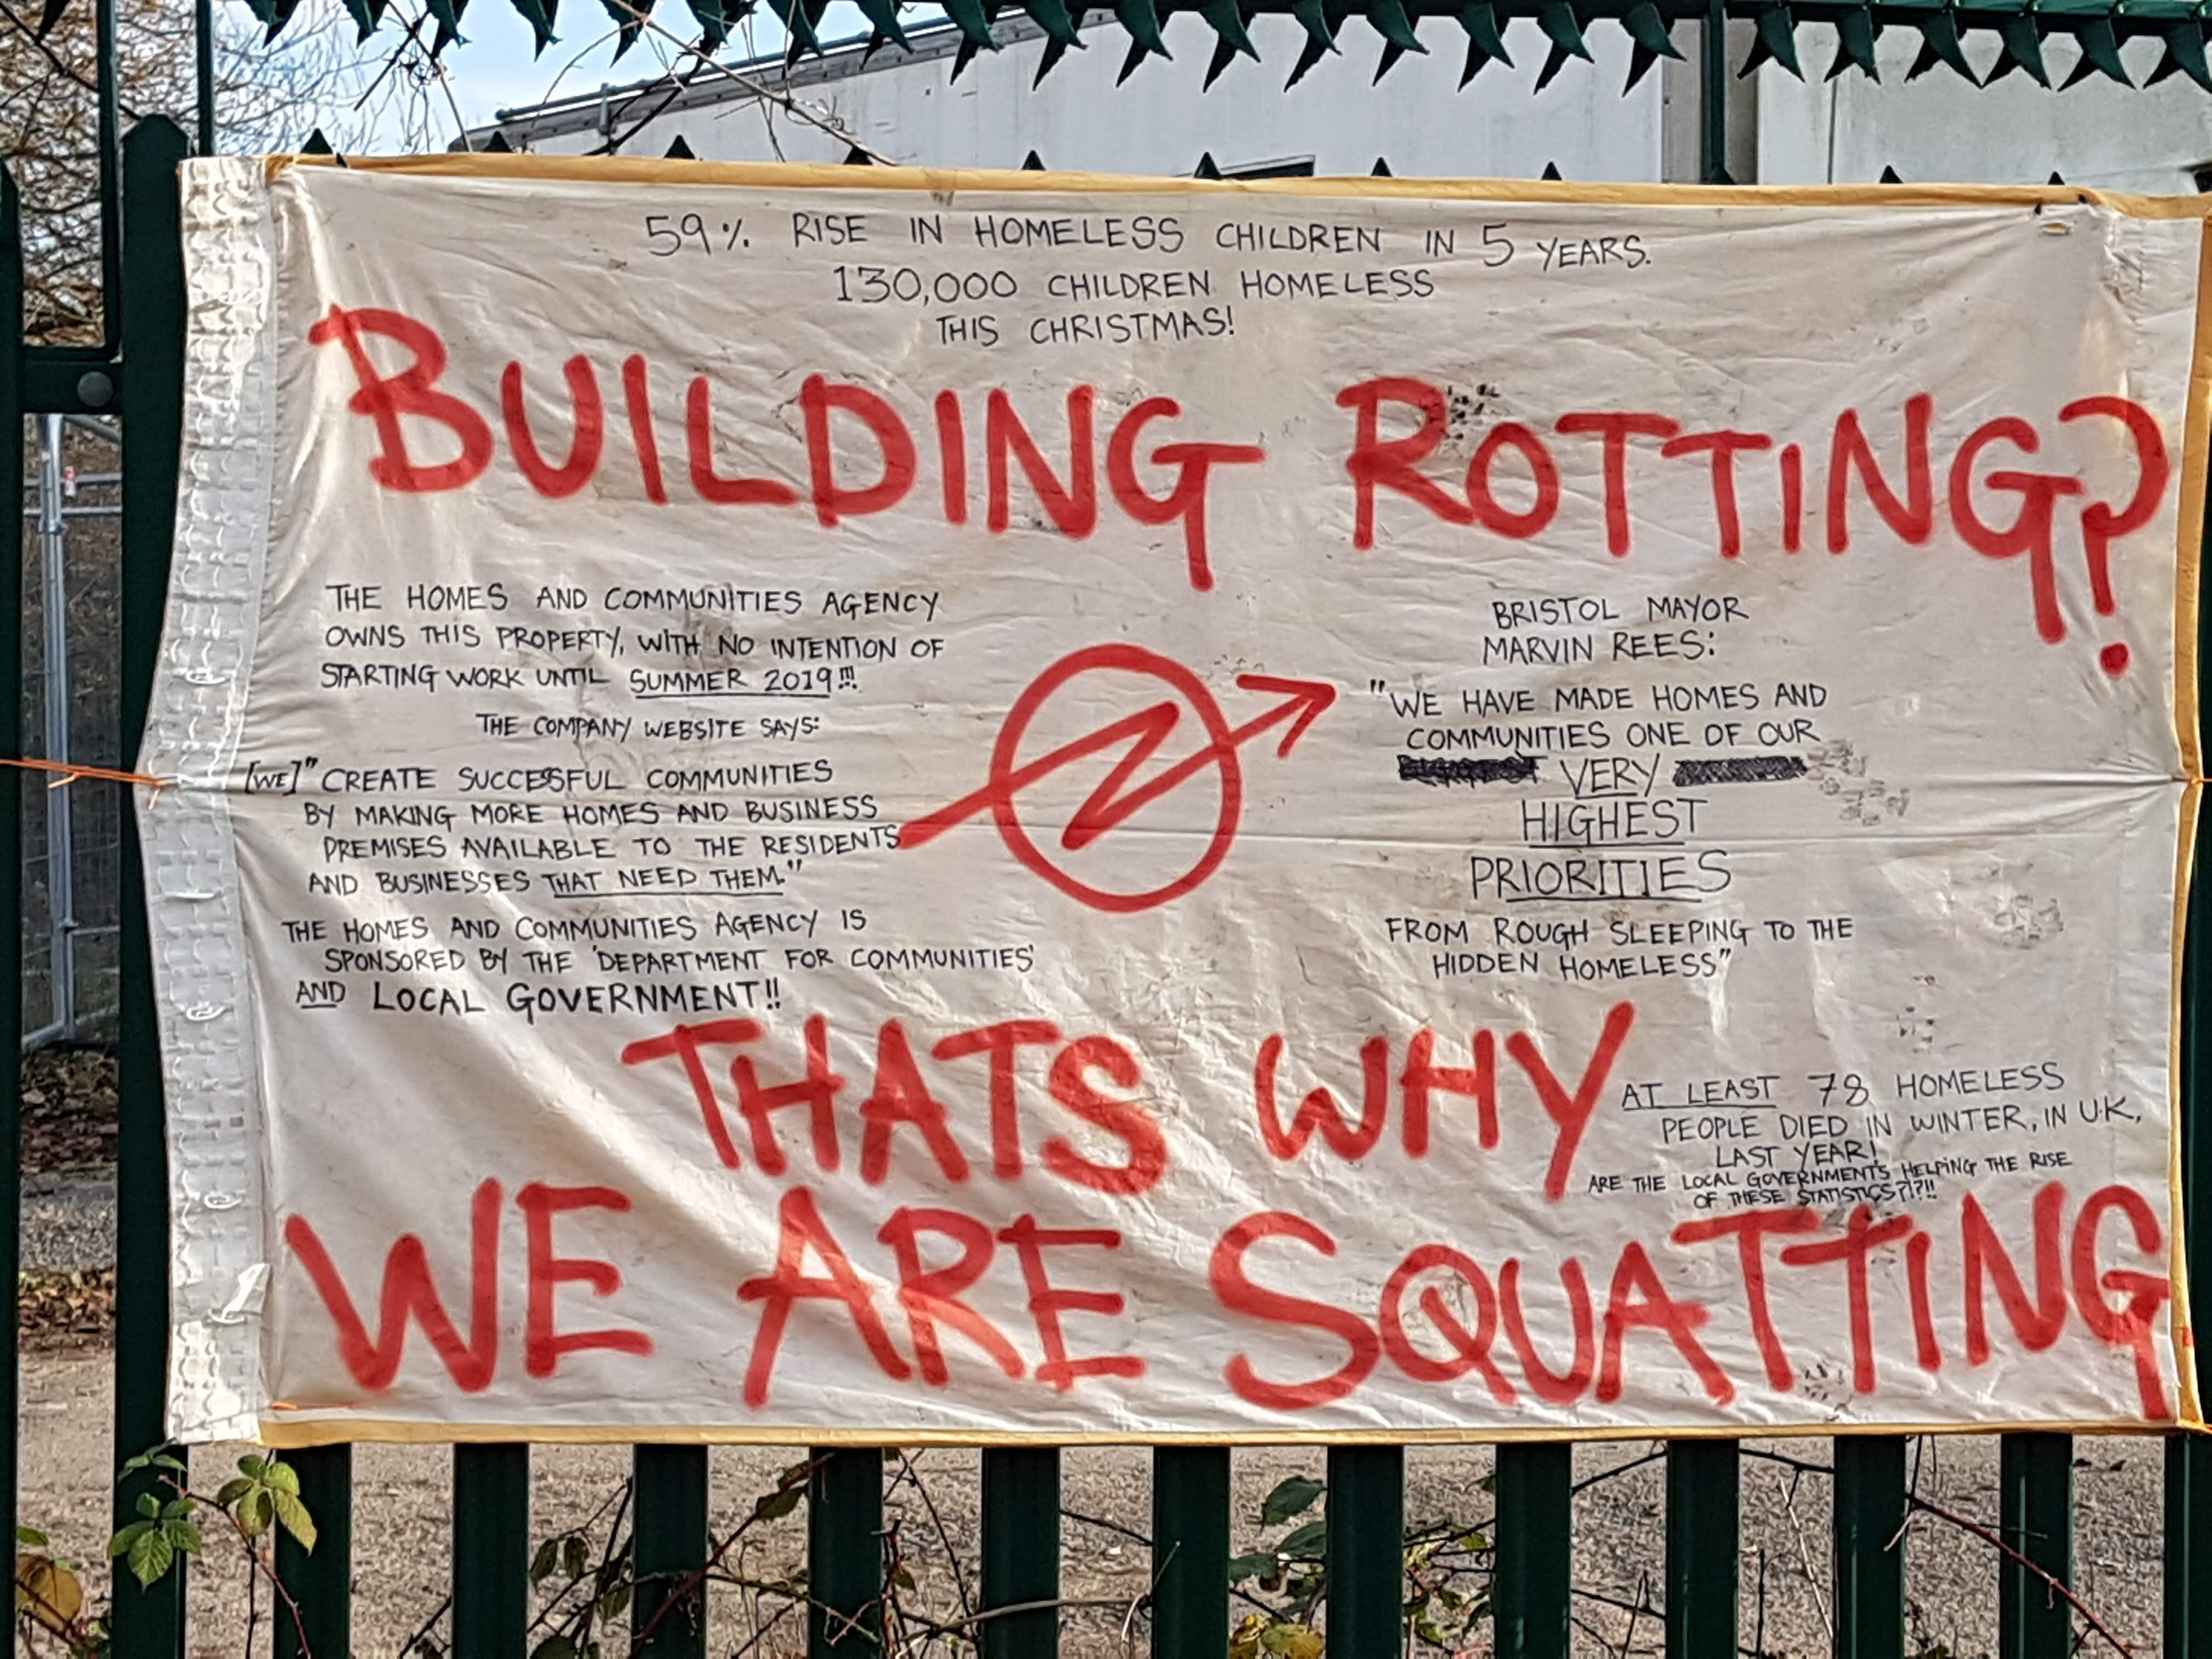 59% RISE IN HOMELESS CHILDREN IN 5 YEARS.
130,000 CHILDREN HOMELESS
THIS CHRISTMAS!
BUILDING ROTTING?
THE HOMES AND COMMUNITIES AGENCY
OWNS THIS PROPERTY, WITH NO INTENTION OF
STARTING WORK UNTIL SUMMER 2019!!!
THE COMPANY WEBSITE SAYS:
[WE]"CREATE SUCCESSFUL COMMUNITIES
BY MAKING MORE HOMES AND BUSINESS
PREMISES AVAILABLE TO THE RESIDENTS
AND BUSINESSES THAT NEED THEM."
THE HOMES AND COMMUNITIES AGENCY IS
SPONSORED BY THE 'DEPARTMENT FOR COMMUNITIES'
AND LOCAL GOVERNMENT!!
BRISTOL MAYOR
MARVIN REES:
"WE HAVE MADE HOMES AND
COMMUNITIES ONE OF OUR
VERY
HIGHEST
PRIORITIES
FROM ROUGH SLEEPING TO THE
HIDDEN HOMELESS"
THATS WHY
WE ARE SQUATTING
AT LEAST 78 HOMELESS
PEOPLE DIED IN WINTER, IN U.K,
LAST YEAR!
ARE THE LOCAL GOVERNMENTS HELPING THE RISE
OF THESE STATISTICS?!?!!